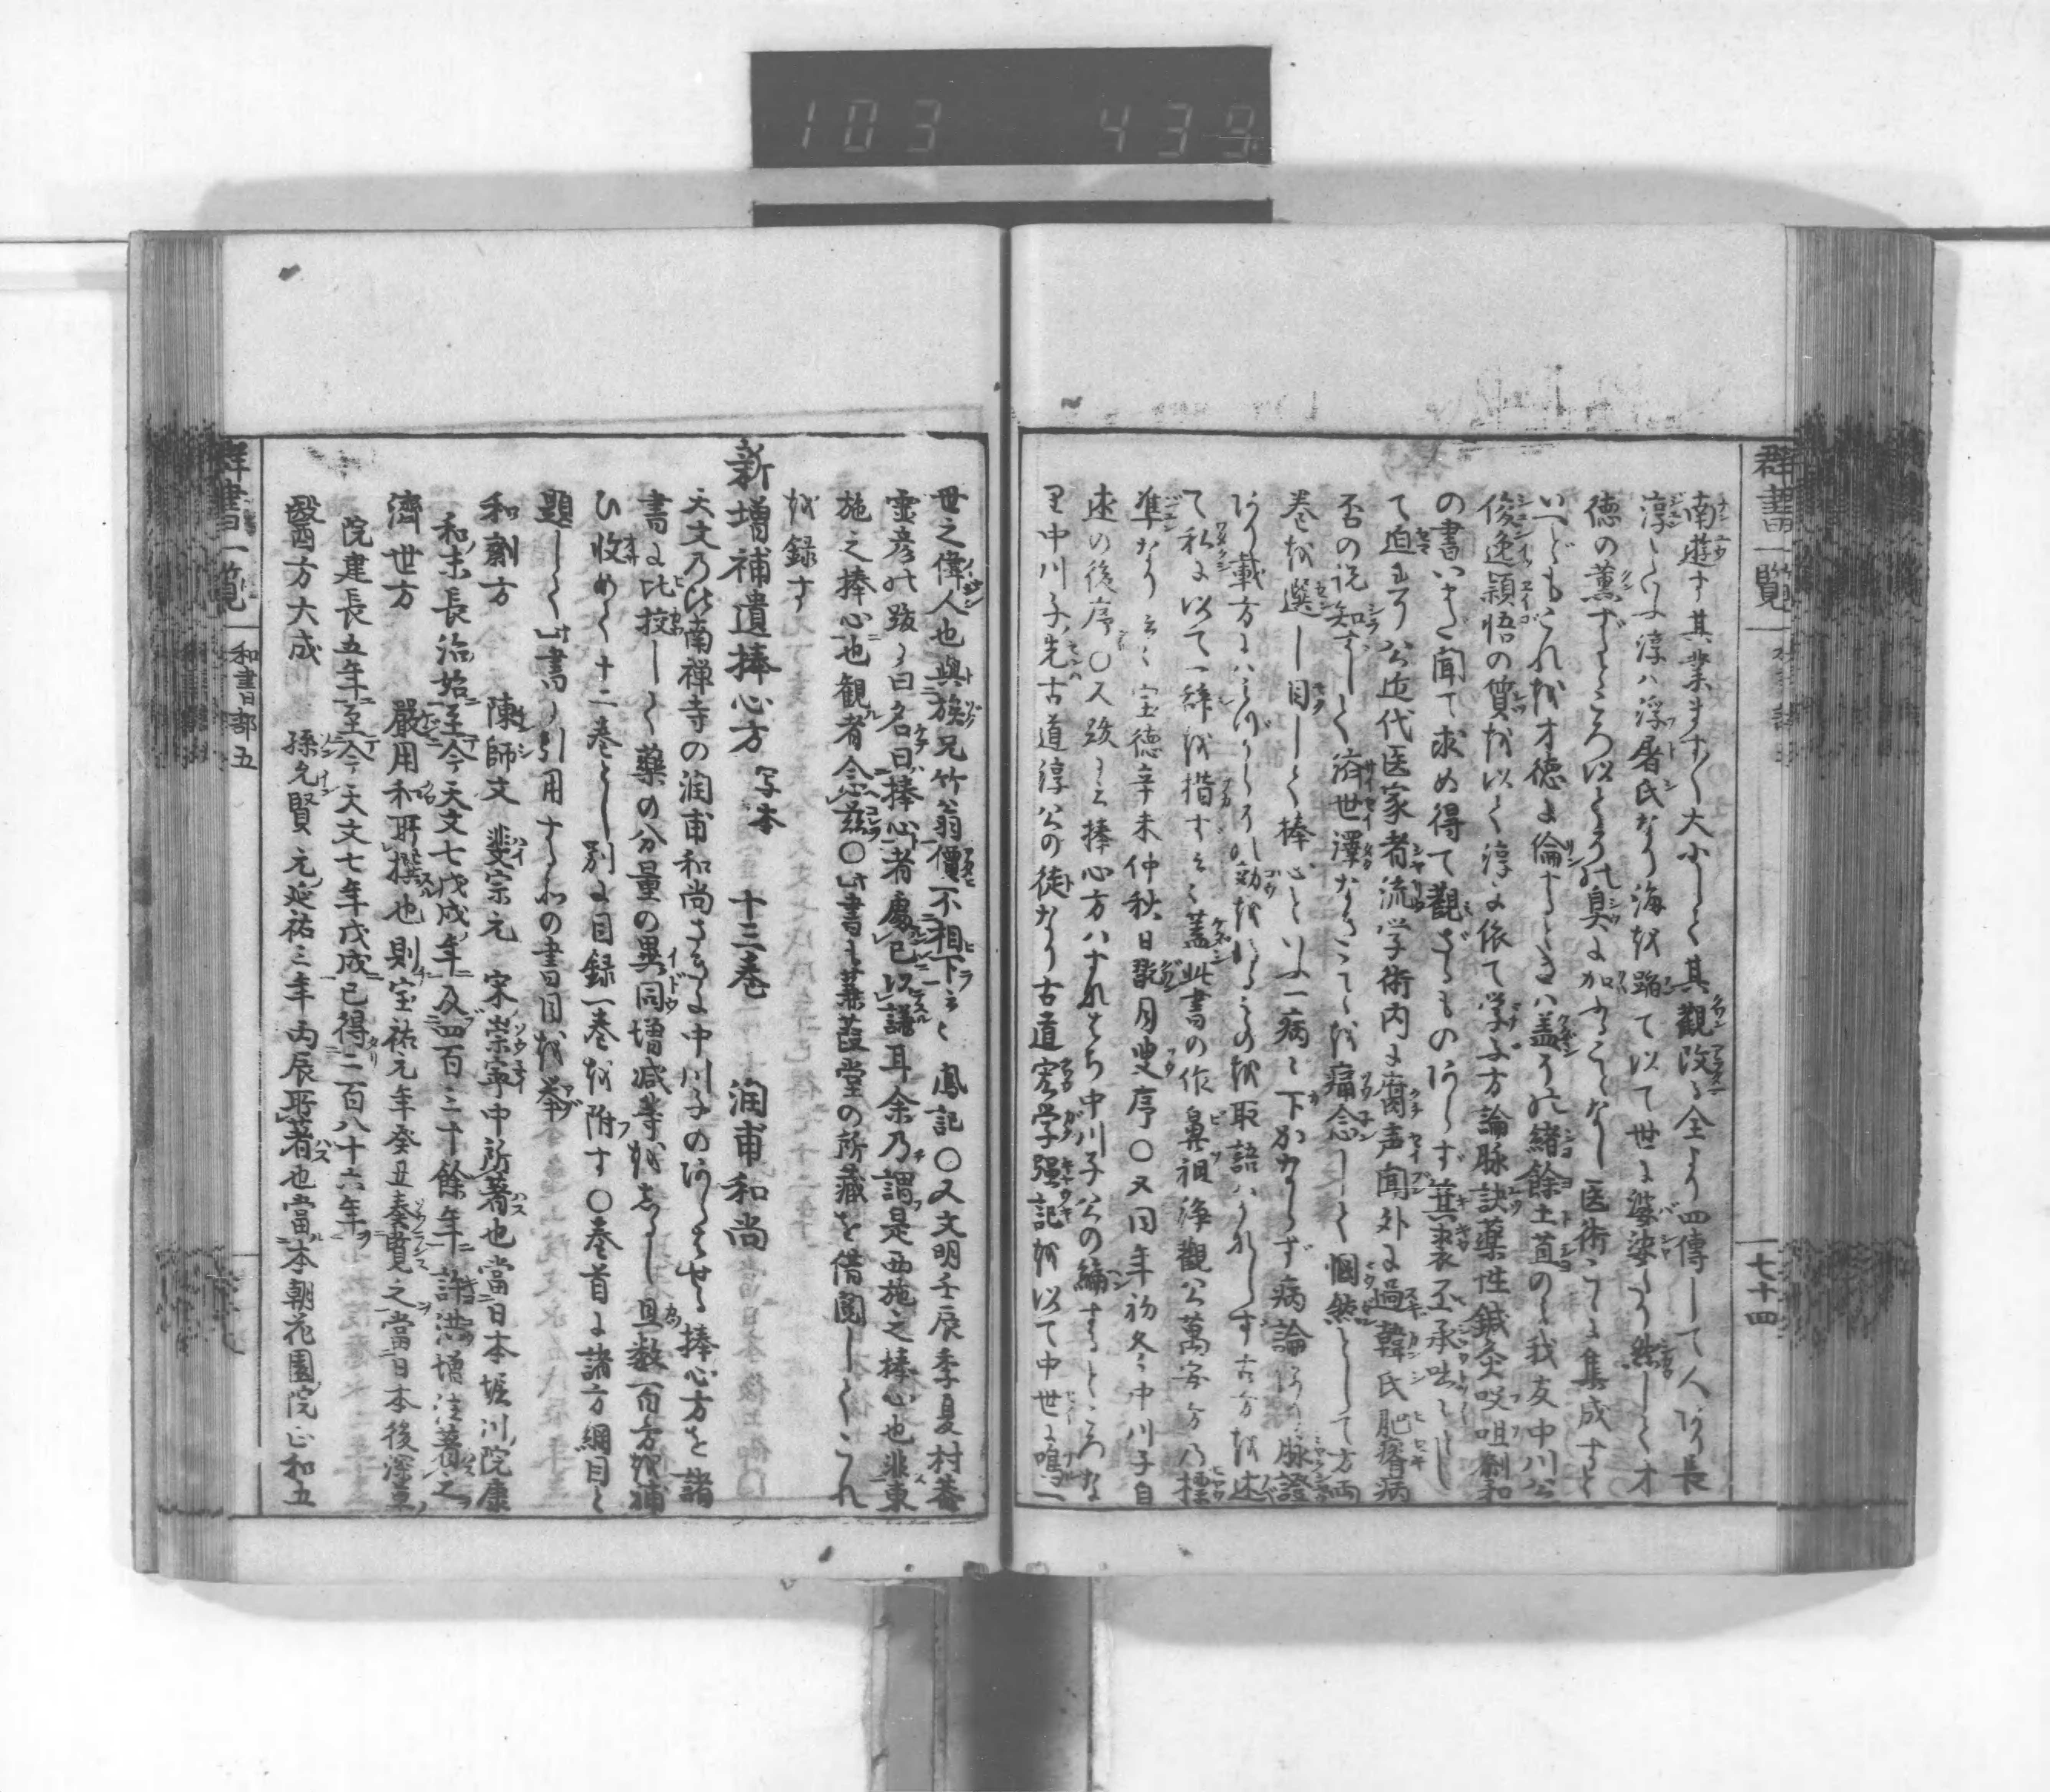 103 439
群書一覧
七十四
南遊す其業ます〳〵大にして其觀改る全より四傳して人あり長
淳といふ淳ハ浮屠氏なり海を踰て以て世に婆娑たり然して才
徳の薫ずるところ以とほり臭に加ふることなし医術ここに集成すと
いへどもこれを才徳に倫するときハ蓋その緒餘土苴のミ我友中川公
俊逸穎悟の質を以て淳に依て学ぶ方論脉訣薬性鍼灸㕮咀劑和
の書いまだ聞て求め得て觀ざるものあらず箕裘丕承
て迫れり公近代医家者流学術内に腐声聞外に過韓氏肥瘠病
否の説知ずして済世澤なきことを痛念して悃然として方両
巻を選し目して捧心といふ一病に下かならず病論あり脉證
あり載方にハことごとくその効をしるすの取語ハ
て私に以て一辞を措すと云々蓋此書の作鼻祖浄觀公萬安方乃標
準なり云々宝徳辛未仲秋日 序〇又同年初冬中川子自
述の後序〇又跋に云捧心方ハすなはち中川子公の編するところな
里中川子先古道淳公の徒なり古道宏学強記を以て中世に鳴一
世之偉人也與族兄竹翁價不相下云々 鳳記〇又文明壬辰季夏村菴
霊彦の跋に曰名曰捧心者慮已以謙耳余乃謂是西施之捧心也非東
施之捧心也観者念茲〇此書も蒹葭堂の所藏を借閲してこれ
を録す
新增補遺捧心方 写本 十三巻 潤甫和尚
天文乃比南禅寺の潤甫和尚さきに中川子のあらはせる捧心方を諸
書に比挍して藥の分量の異同増减等をしるし且数百方を補
ひ收めて十二巻とし別に目録一巻を附す〇巻首に諸方綱目と
題して此書に引用するの書目を挙
和劑方 陳師文 斐宗元 宋崇寧中所著也當日本堀川院康
和末長治始至今天文七戊戌年及四百三十餘年許洪增注著之
濟世方 嚴用和所撰也則宝祐元年癸丑奏覽之當日本後深草
院建長五年至今天文七年戊戌已得二百八十六年
醫方大成 孫允賢 元延祐三年丙辰所著也當本朝花園院正和五
群書一覧
和書部五